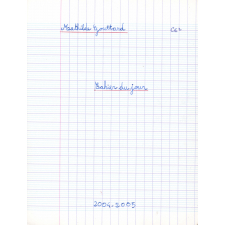 Mathilde Gouttard CE2
Cahier du jour
2004-2005